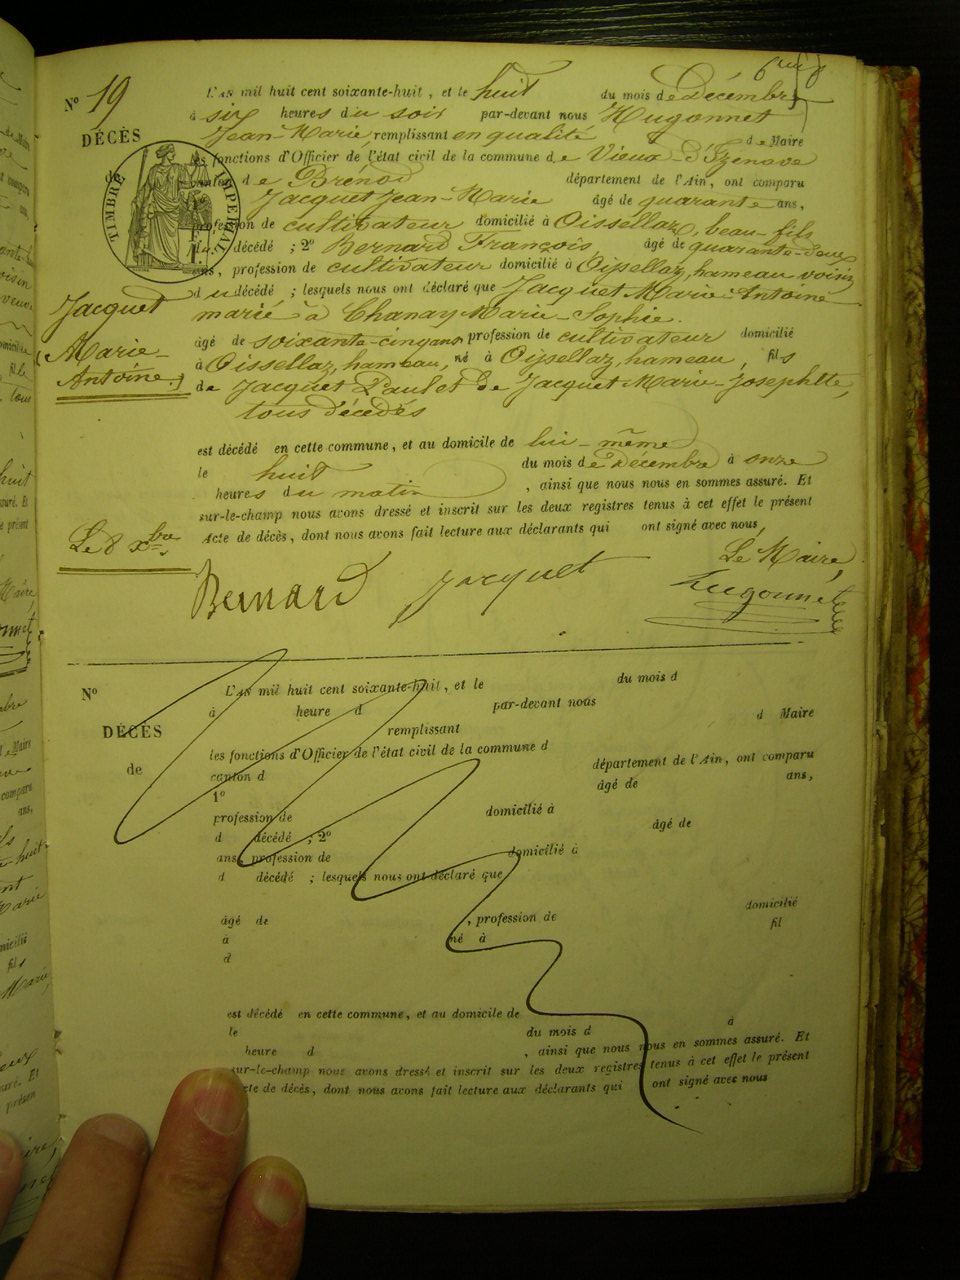 N° 19
DÉCÈS
de
TIMBRE IMPERIAL
Jacquet
Marie-
Antoine.
Le 8 xbre
L'AN mil huit cent soixante-huit, et le huit du mois de Décembre
à six heures du soir par-devant nous Hugonnet
Jean-Marie, remplissant en qualité de Maire
les fonctions d'Officier de l'état civil de la commune de Vieux-d'Izenave
canton de Brénod département de l'Ain, ont comparu
Jacquet Jean-Marie âgé de quarante ans,
profession de cultivateur domicilié à Oissellaz, beau-fils
du décédé ; 2° Bernard François, âgé de quarante-deux
ans, profession de cultivateur domicilié à Oissellaz, hameau voisin
du décédé ; lesquels nous ont déclaré que Jacquet Marie-Antoine
marié à Chanay Marie-Sophie.
âgé de soixante-cinq ans, profession de cultivateur domicilié
à Oissellaz, hameau, né à Oissellaz, hameau, fils
de Jacquet Paul et de Jacquet Marie-Josephte,
tous décédés
est décédé en cette commune, et au domicile de lui-même
le huit du mois de Décembre à onze
heures du matin, ainsi que nous nous en sommes assuré. Et
sur-le-champ nous avons dressé et inscrit sur les deux registres tenus à cet effet le présent
Acte de décès, dont nous avons fait lecture aux déclarants qui ont signé avec nous,
Le Maire,
Bernard Jacquet Hugonnet
N°
DÉCÈS
de
L'AN mil huit cent soixante-huit, et le du mois d
à heure d par-devant nous
remplissant d Maire
les fonctions d'Officier de l'état civil de la commune d
canton d département de l'Ain, ont comparu
1° âgé de ans,
profession de domicilié à
d décédé ; 2° âgé de
ans, profession de domicilié à
d décédé ; lesquels nous ont déclaré que
âgé de , profession de domicilié
à né à fil
d
est décédé en cette commune, et au domicile de
le du mois d à
heure d , ainsi que nous nous en sommes assuré. Et
sur-le-champ nous avons dressé et inscrit sur les deux registres tenus à cet effet le présent
Acte de décès, dont nous avons fait lecture aux déclarants qui ont signé avec nous